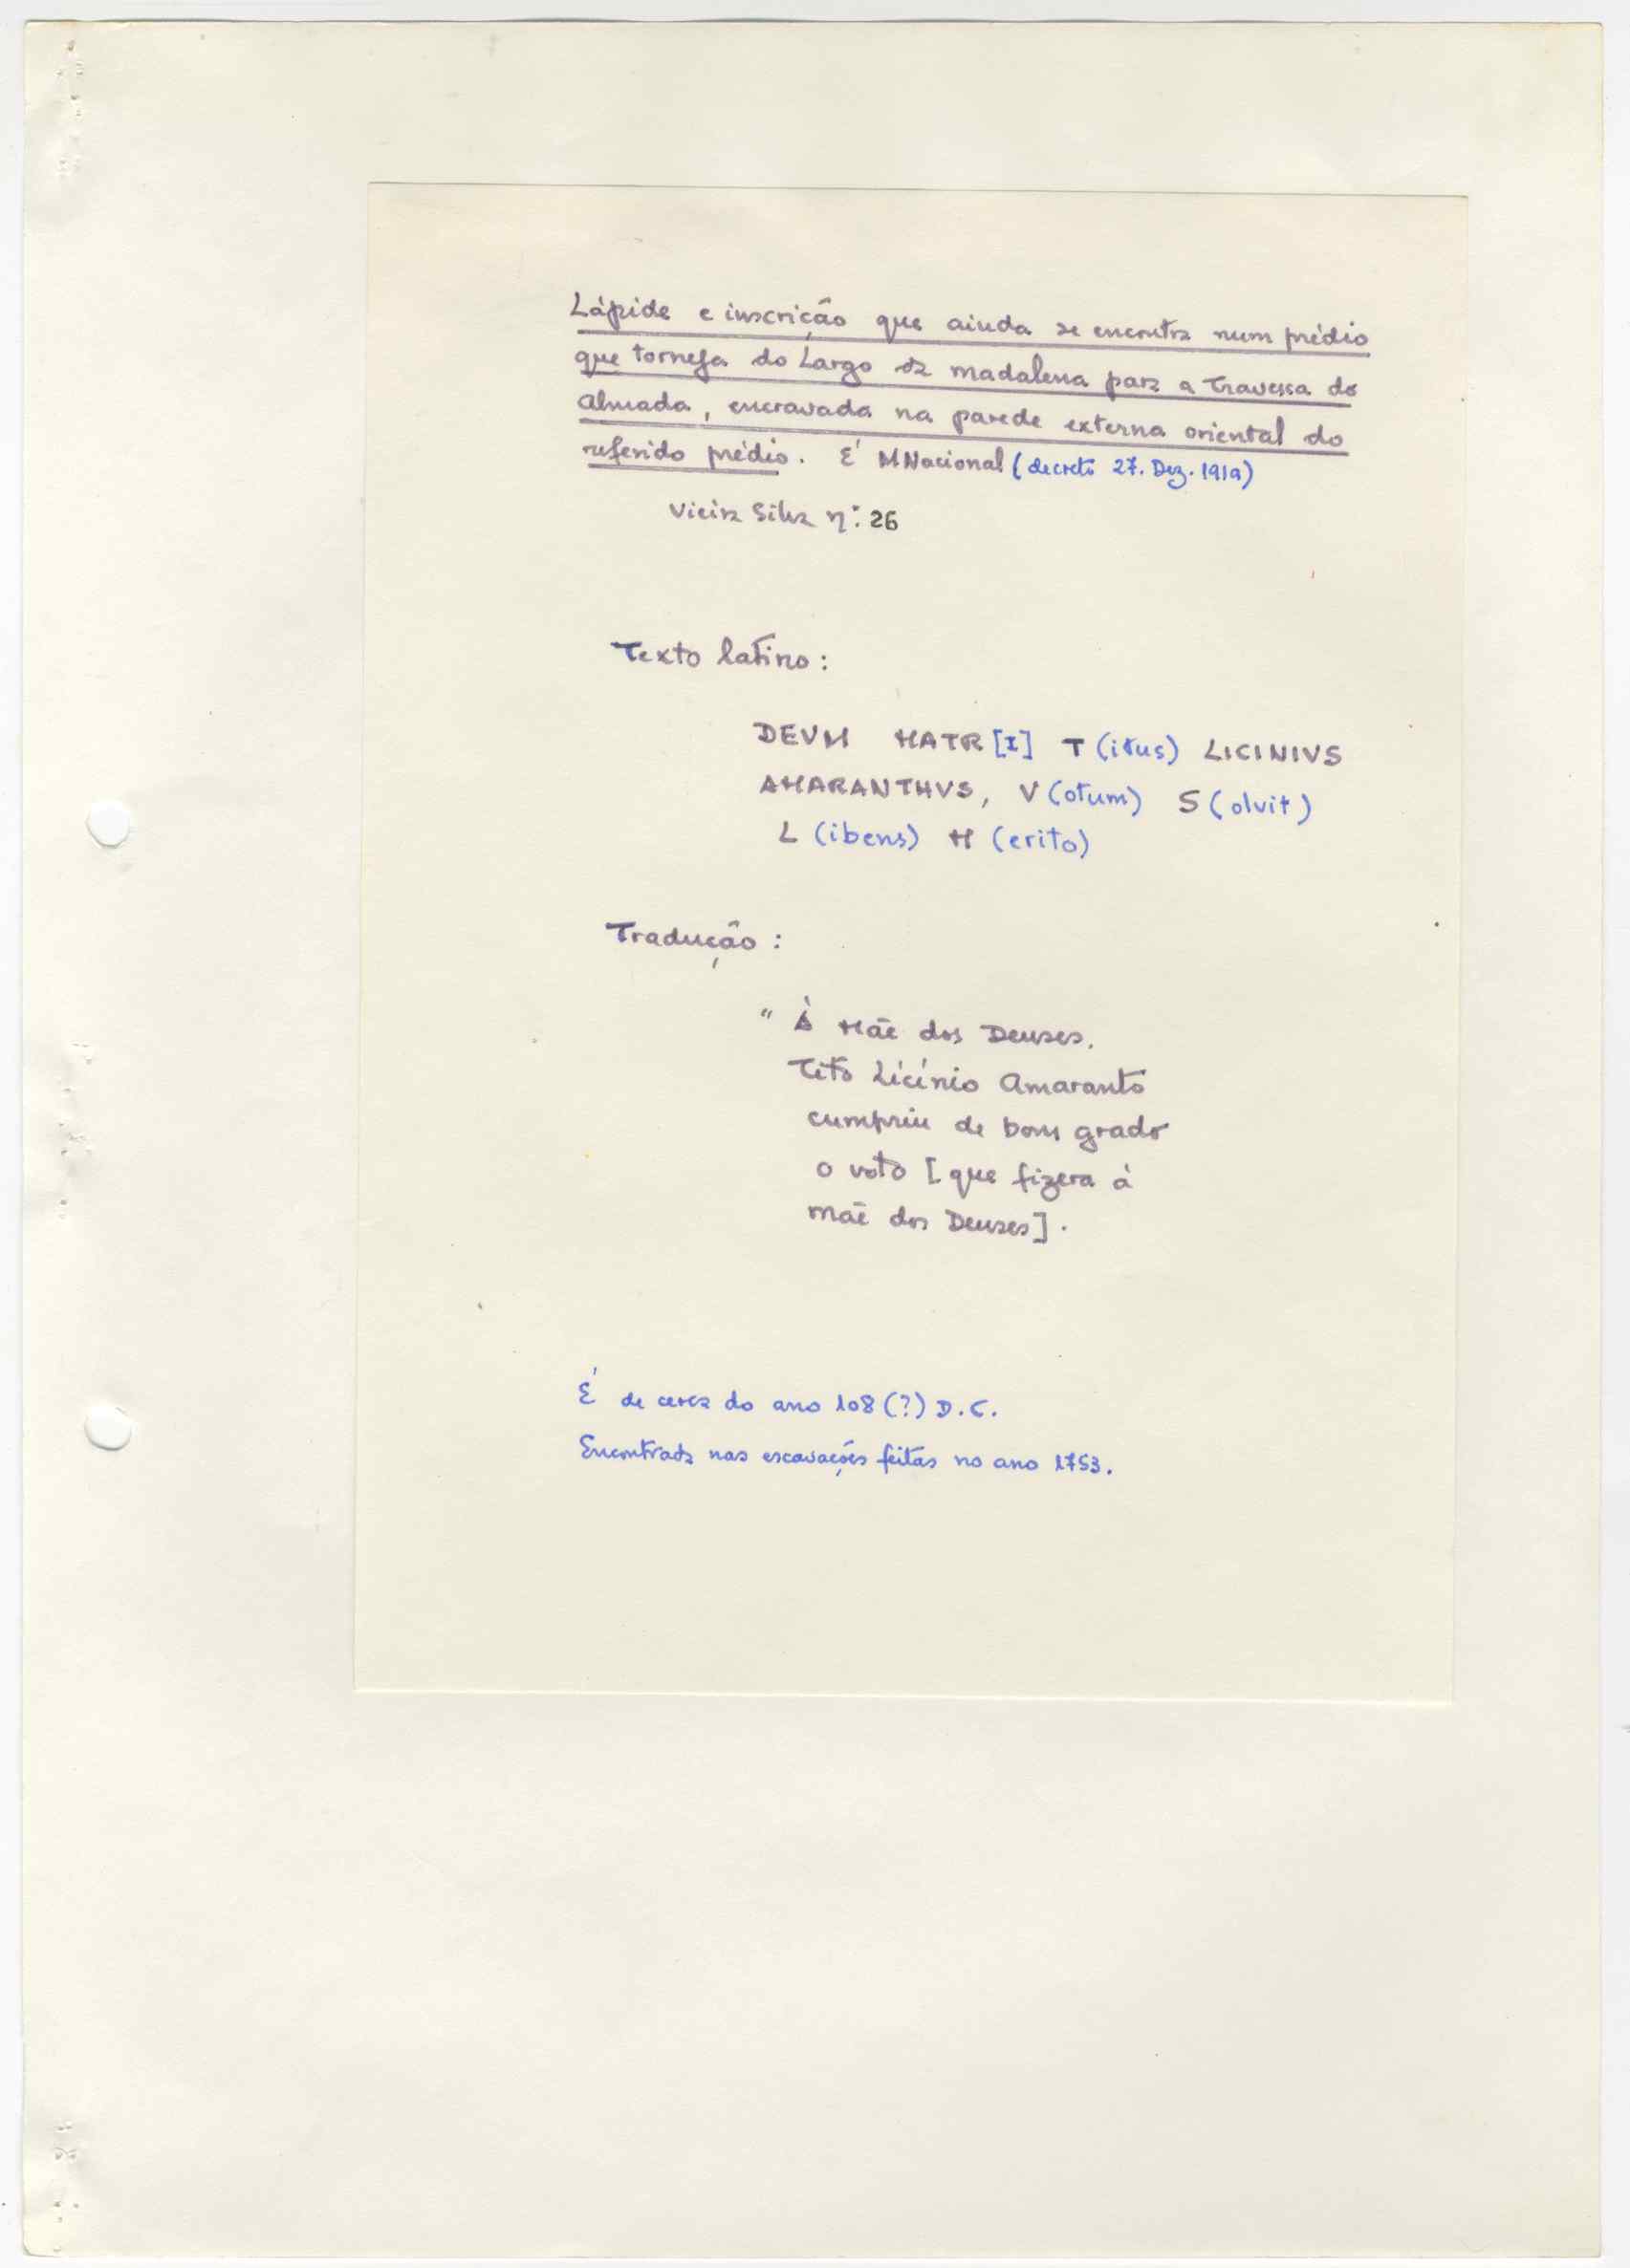 Lápide e inscrição que ainda se encontra num prédio
que torneja do Largo da Madalena para a Travessa do
Almada, encravada na parede externa oriental do
referido prédio. É MNacional (decreto 27. Dez. 1919)
Vieira Silva nº: 26
Texto latino:
DEVM MATR[I] T(itus) LICINIVS
AMARANTHVS, V(otum) S(olvit)
L(ibens) M(erito)
Tradução:
" À Mãe dos Deuses.
Tito Licínio Amaranto
cumpriu de bom grado
o voto [que fizera à
mãe dos Deuses].
É de cerca do ano 108 (?) D.C.
Encontrada nas escavações feitas no ano 1753.